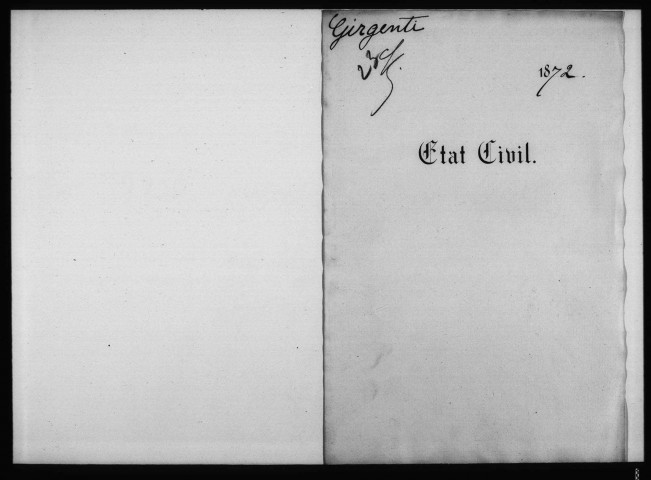 Girgenti
1872.
Etat Civil.